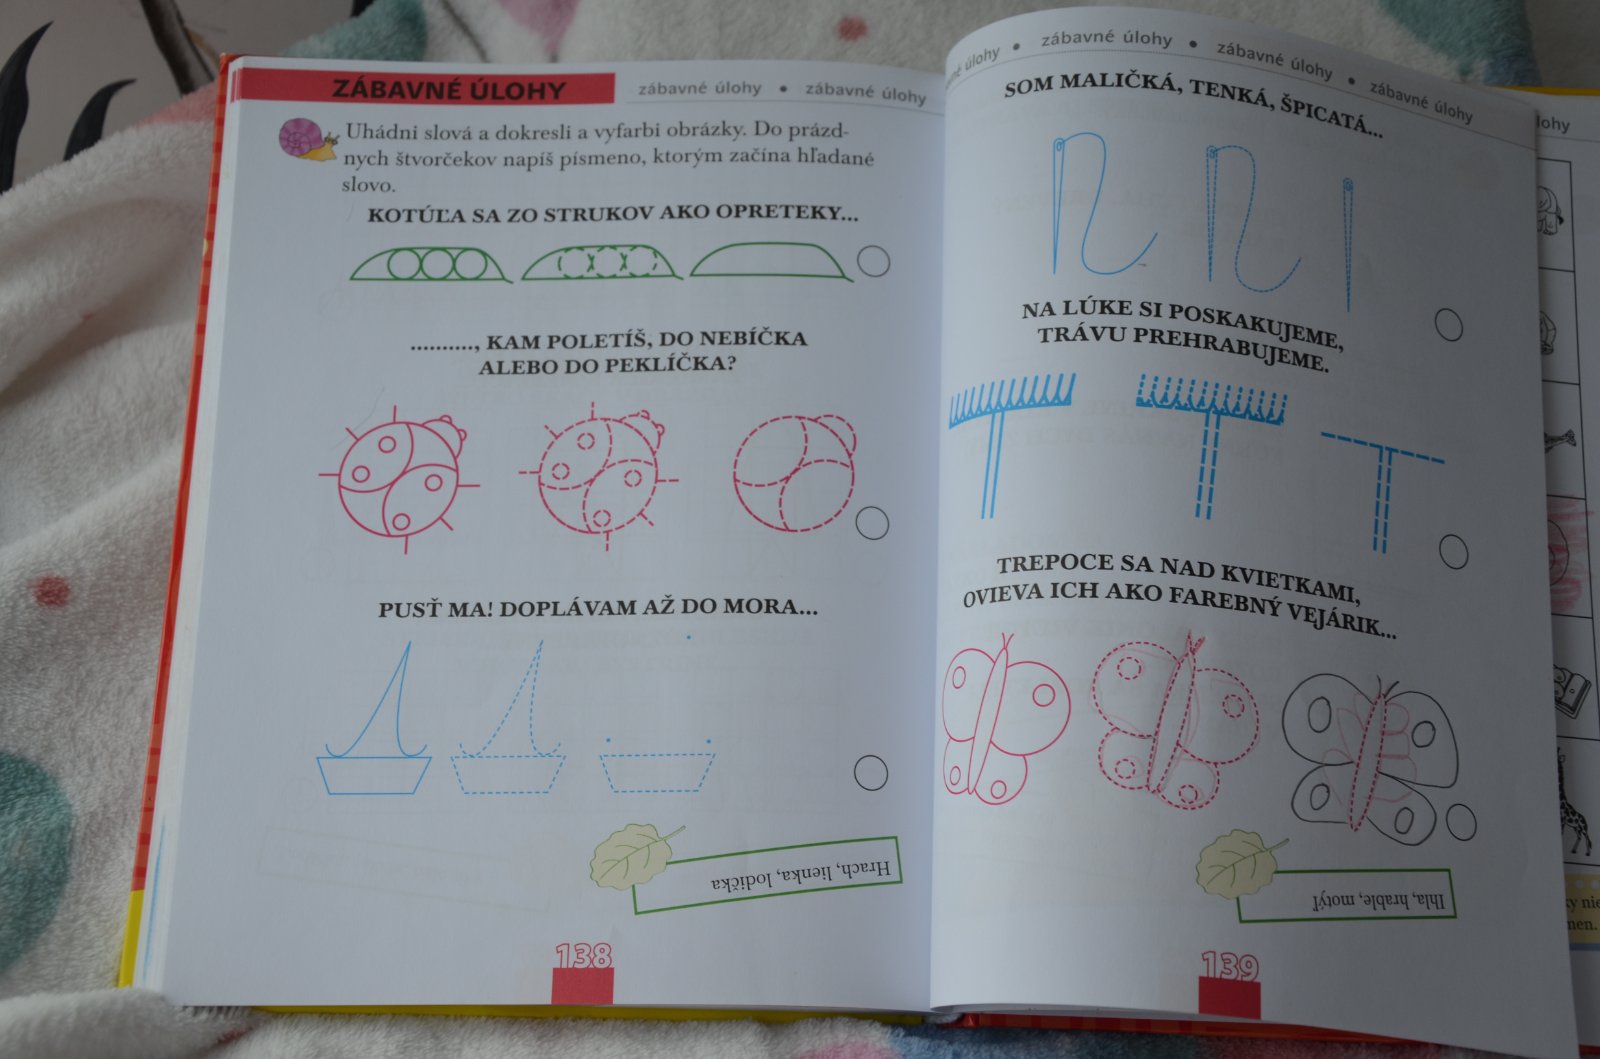 ZÁBAVNÉ ÚLOHY
zábavné úlohy • zábavné úlohy
Uhádni slová a dokresli a vyfarbi obrázky. Do prázd-
nych štvorčekov napíš písmeno, ktorým začína hľadané
slovo.
KOTÚĽA SA ZO STRUKOV AKO OPRETEKY...
.........., KAM POLETÍŠ, DO NEBÍČKA
ALEBO DO PEKLÍČKA?
PUSŤ MA! DOPLÁVAM AŽ DO MORA...
Hrach, lienka, lodička
138
úlohy • zábavné úlohy • zábavné úlohy • zábavné úlohy
SOM MALIČKÁ, TENKÁ, ŠPICATÁ...
NA LÚKE SI POSKAKUJEME,
TRÁVU PREHRABUJEME.
TREPOCE SA NAD KVIETKAMI,
OVIEVA ICH AKO FAREBNÝ VEJÁRIK...
Ihla, hrable, motýľ
139